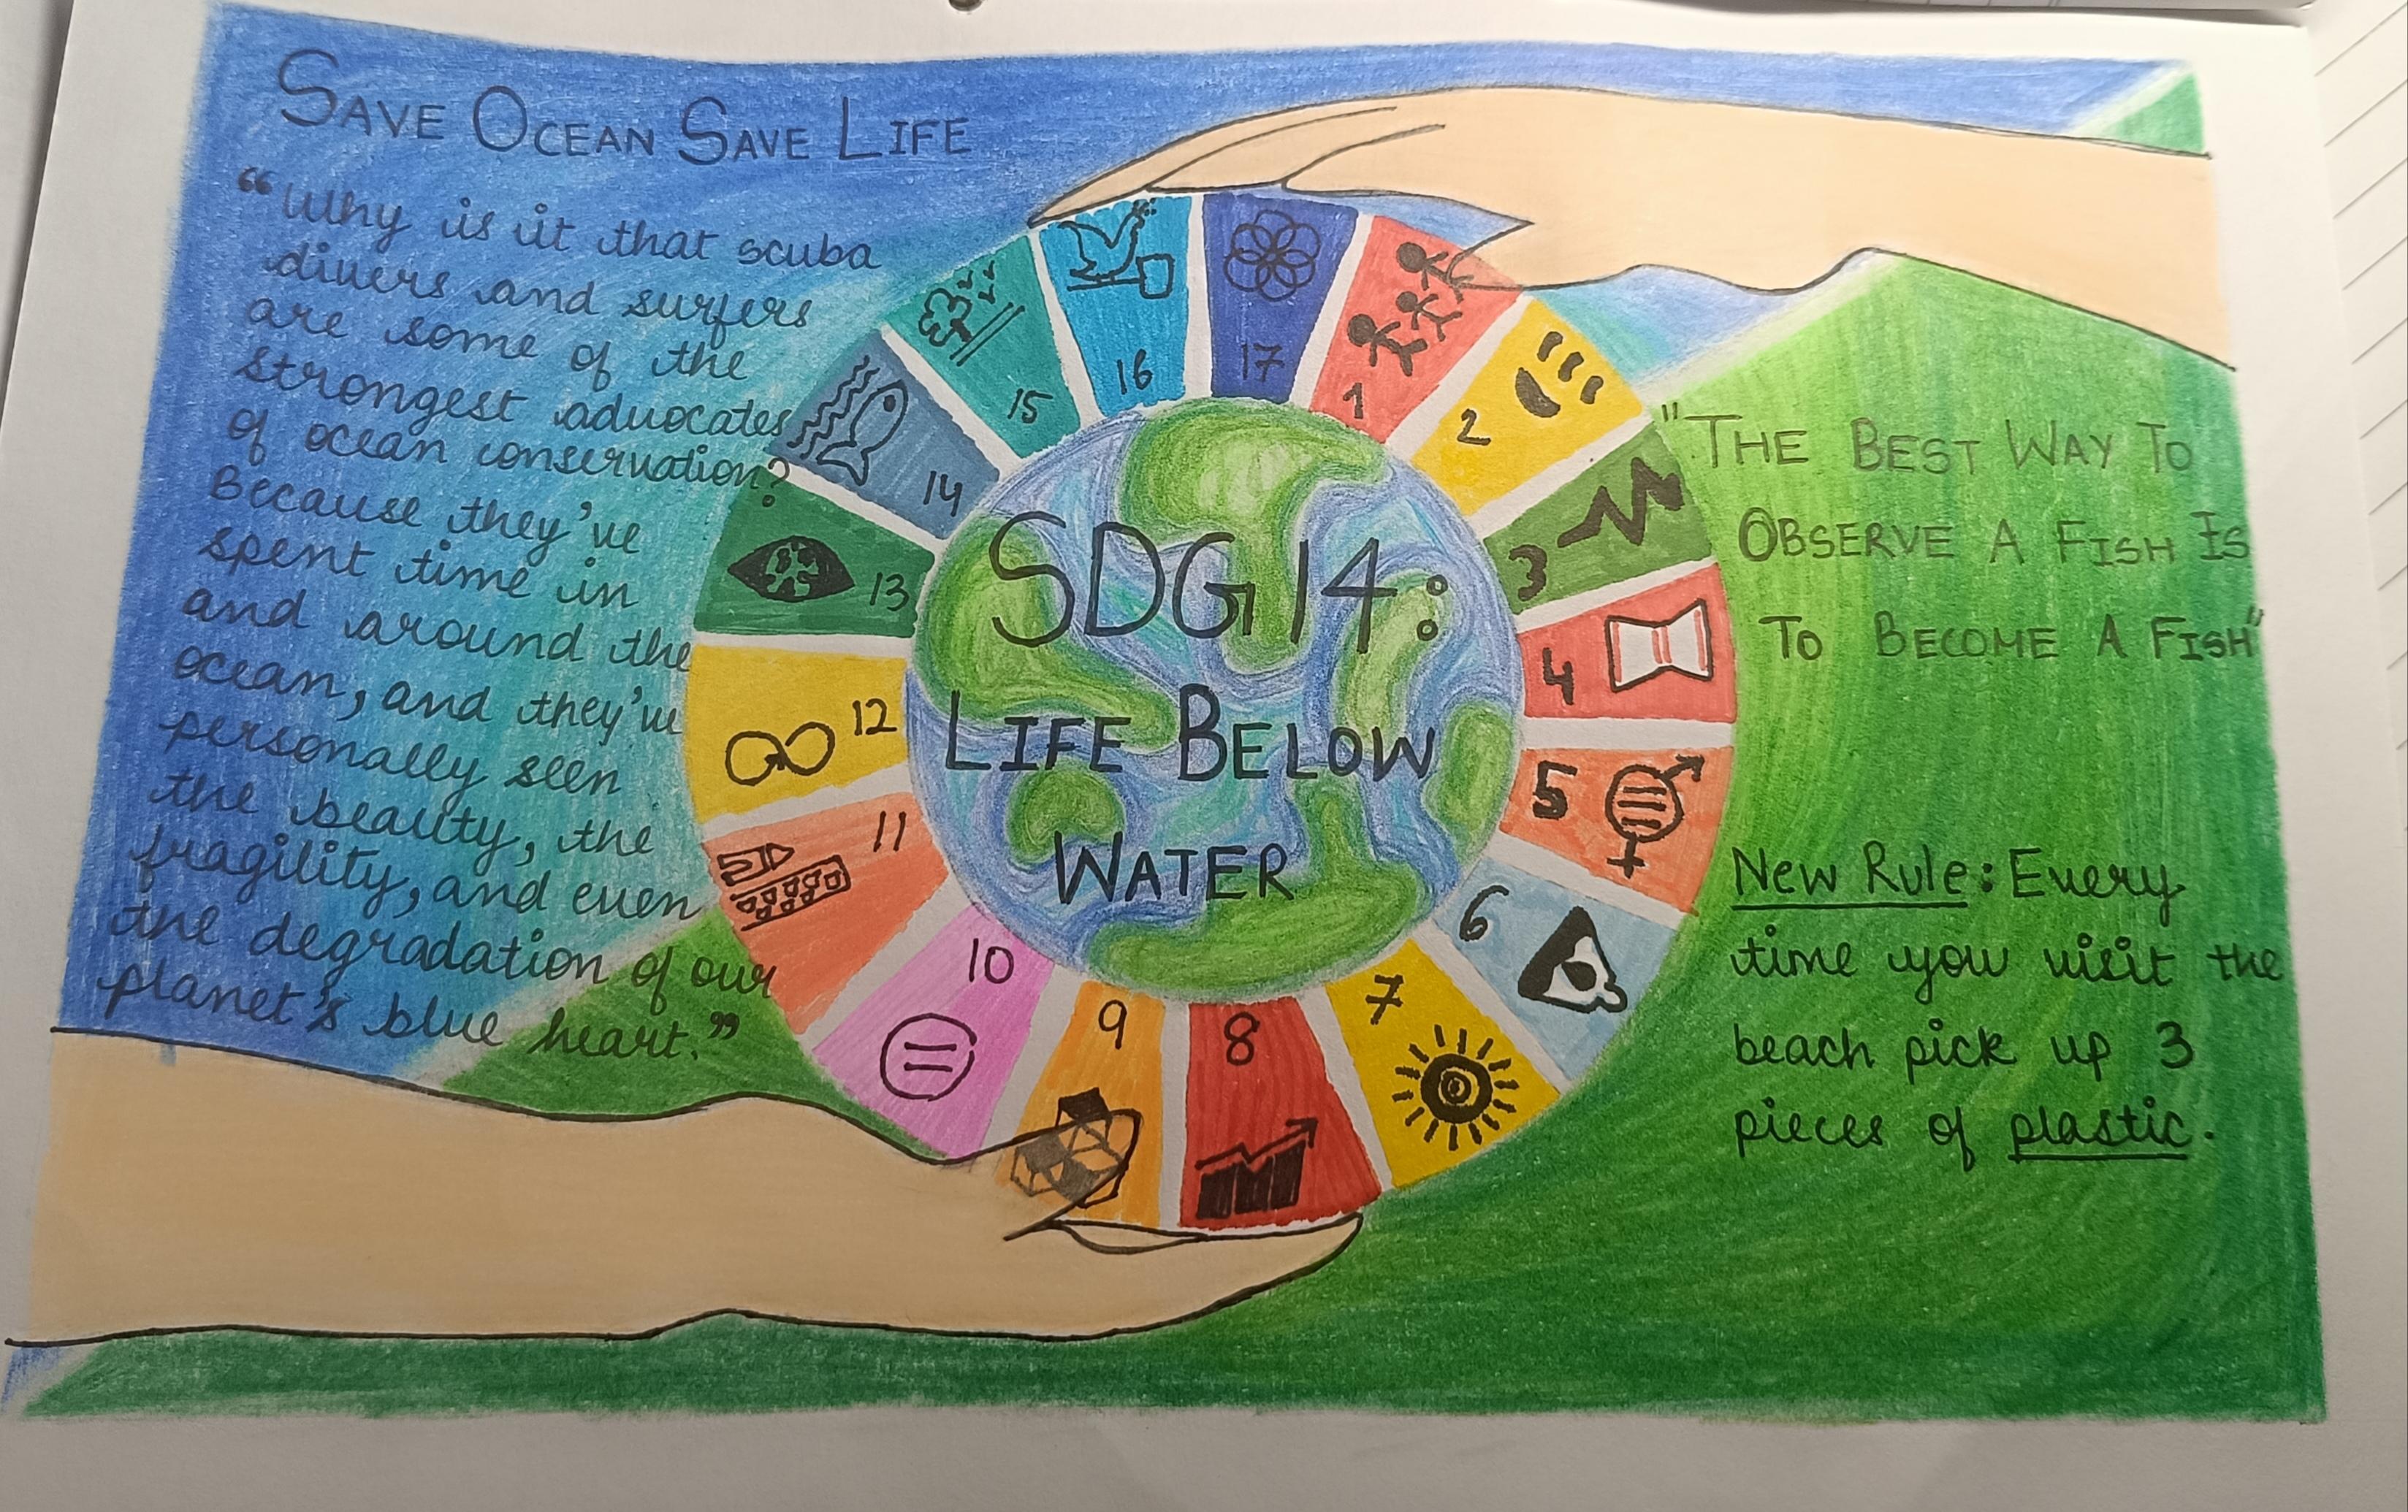 SAVE OCEAN SAVE LIFE
“Why is it that scuba
divers and surfers
are some of the
strongest advocates
of ocean conservation?
Because they've
spent time in
and around the
ocean, and they've
personally seen
the beauty, the
fragility, and even
the degradation of our
planet's blue heart.”
17
1
2
3
4
5
6
7
8
9
10
11
12
13
14
15
16
SDG 14:
LIFE BELOW
WATER
"THE BEST WAY TO
OBSERVE A FISH IS
TO BECOME A FISH"
New Rule: Every
time you visit the
beach pick up 3
pieces of plastic.